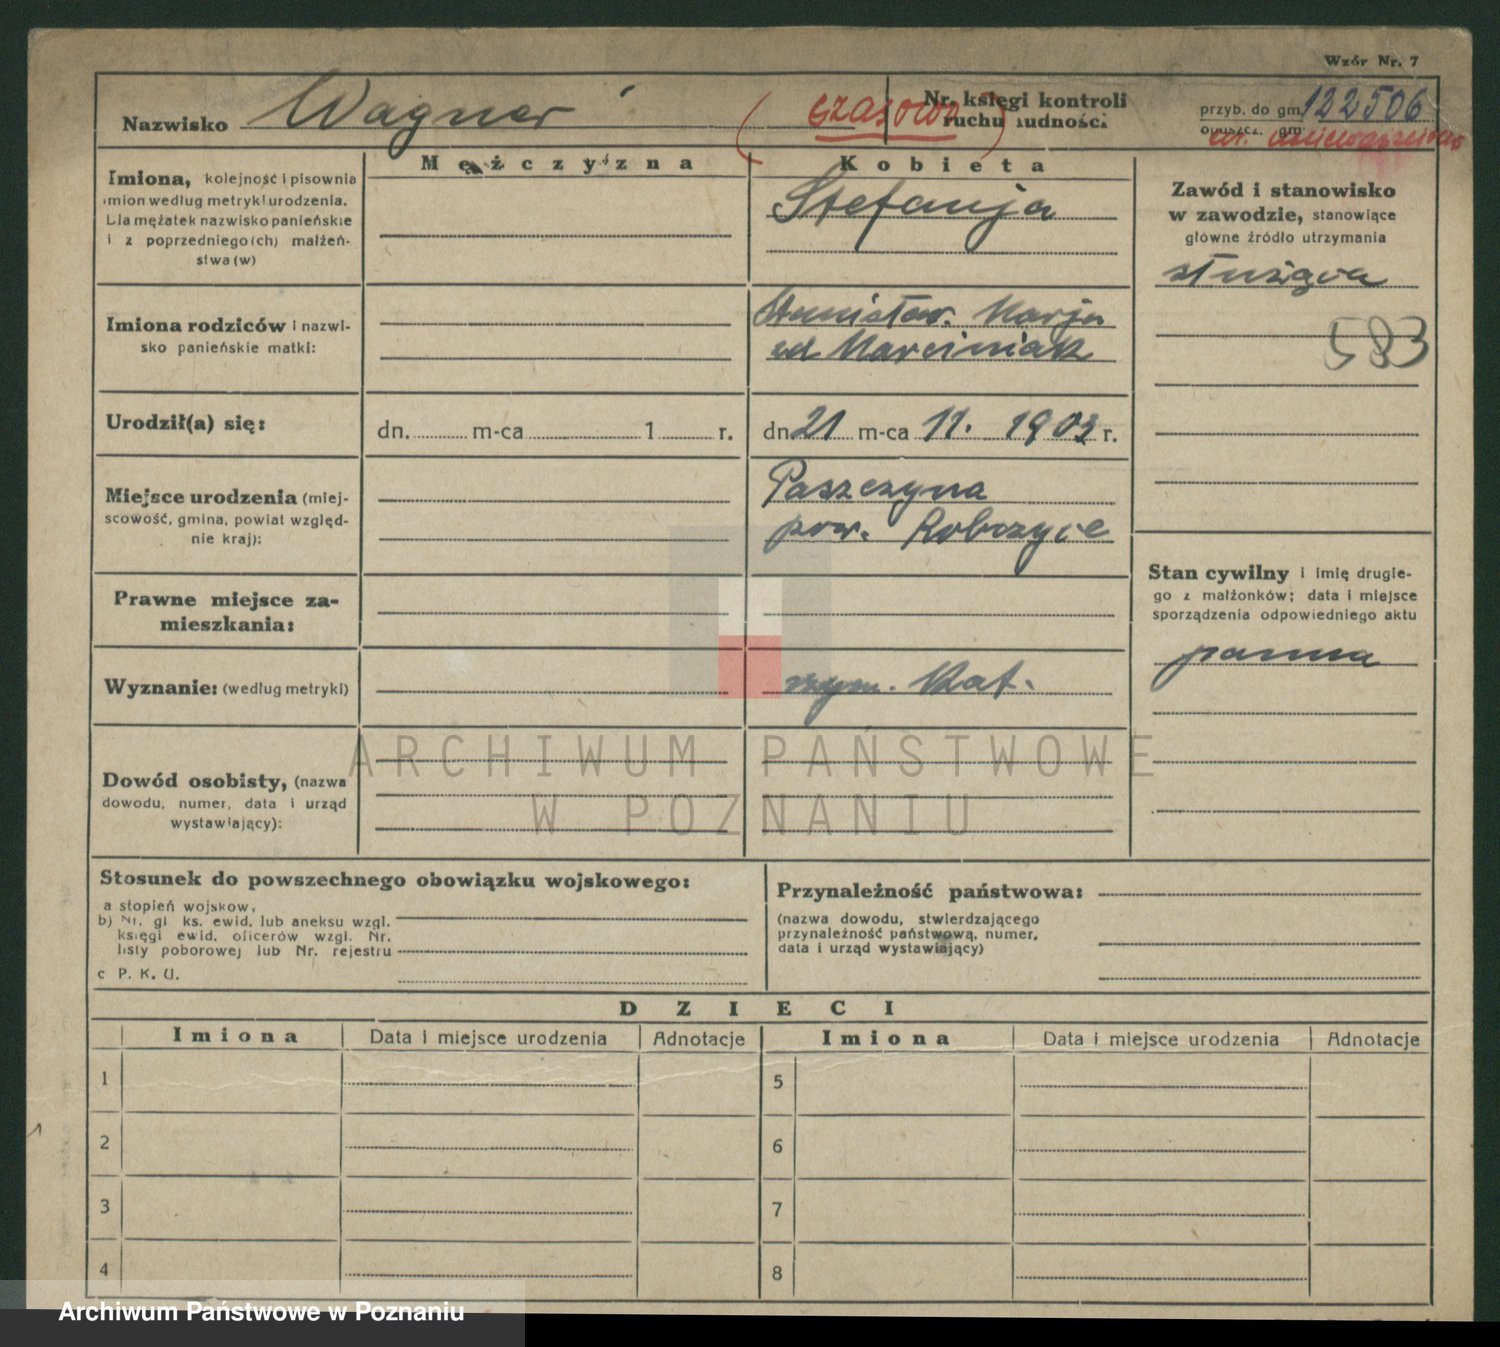 Wzór Nr. 7
Nazwisko Wagner
(czasowo)
Nr. księgi kontroli
ruchu ludności
przyb. do gm. 122506
opuszcz. gm.
Mężczyzna
Kobieta
Imiona, kolejność i pisownia
imion według metryki urodzenia.
Dla mężatek nazwisko panieńskie
i z poprzedniego(ch) małżeń-
stwa(w)
Stefanja
Zawód i stanowisko
w zawodzie, stanowiące
główne źródło utrzymania
służąca
583
Imiona rodziców i nazwi-
sko panieńskie matki:
Stanisław. Marja
Marciniak
Urodził(a) się:
dn. m-ca 1 r.
dn 21 m-ca 11. 1903 r.
Miejsce urodzenia (miej-
scowość, gmina, powiat względ-
nie kraj):
Paszczyna
pow. Robczyce
Prawne miejsce za-
mieszkania:
Stan cywilny i imię drugie-
go z małżonków; data i miejsce
sporządzenia odpowiedniego aktu
panna
Wyznanie: (według metryki)
rzym. Kat.
Dowód osobisty, (nazwa
dowodu, numer, data i urząd
wystawiający):
ARCHIWUM PAŃSTWOWE
W POZNANIU
Stosunek do powszechnego obowiązku wojskowego:
a stopień wojskow.
b) Nr. gl ks. ewid. lub aneksu wzgl.
księgi ewid. oficerów wzgl. Nr.
listy poborowej lub Nr. rejestru
c P. K. U.
Przynależność państwowa:
(nazwa dowodu, stwierdzającego
przynależność państwową, numer,
data i urząd wystawiający)
DZIECI
Imiona Data i miejsce urodzenia Adnotacje Imiona Data i miejsce urodzenia Adnotacje
1 5
2 6
3 7
4 8
Archiwum Państwowe w Poznaniu